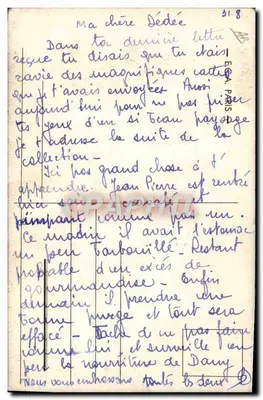 31.8
Ma chère Dédée
Dans ta dernière lettre
reçue tu disais que tu étais
ravie des magnifiques cartes
que je t'avais envoyées Aussi
aujourd'hui pour ne pas priver
tes yeux d'un si beau paysage
je t'adresse la suite de la
collection -
Ici pas grand chose à t'
apprendre. Jean Pierre est rentré
hier
pimpant comme pas un.
Ce matin il avait l'estomac
un peu barbouillé - Restant
probable d'un excès de
gourmandise - Enfin
demain il prendra une
bonne purge et tout sera
effacé - Tache de ne pas faire
comme lui et surveille un
peu la nourriture de Dany
Nous vous embrassons toutes les deux
PARIS